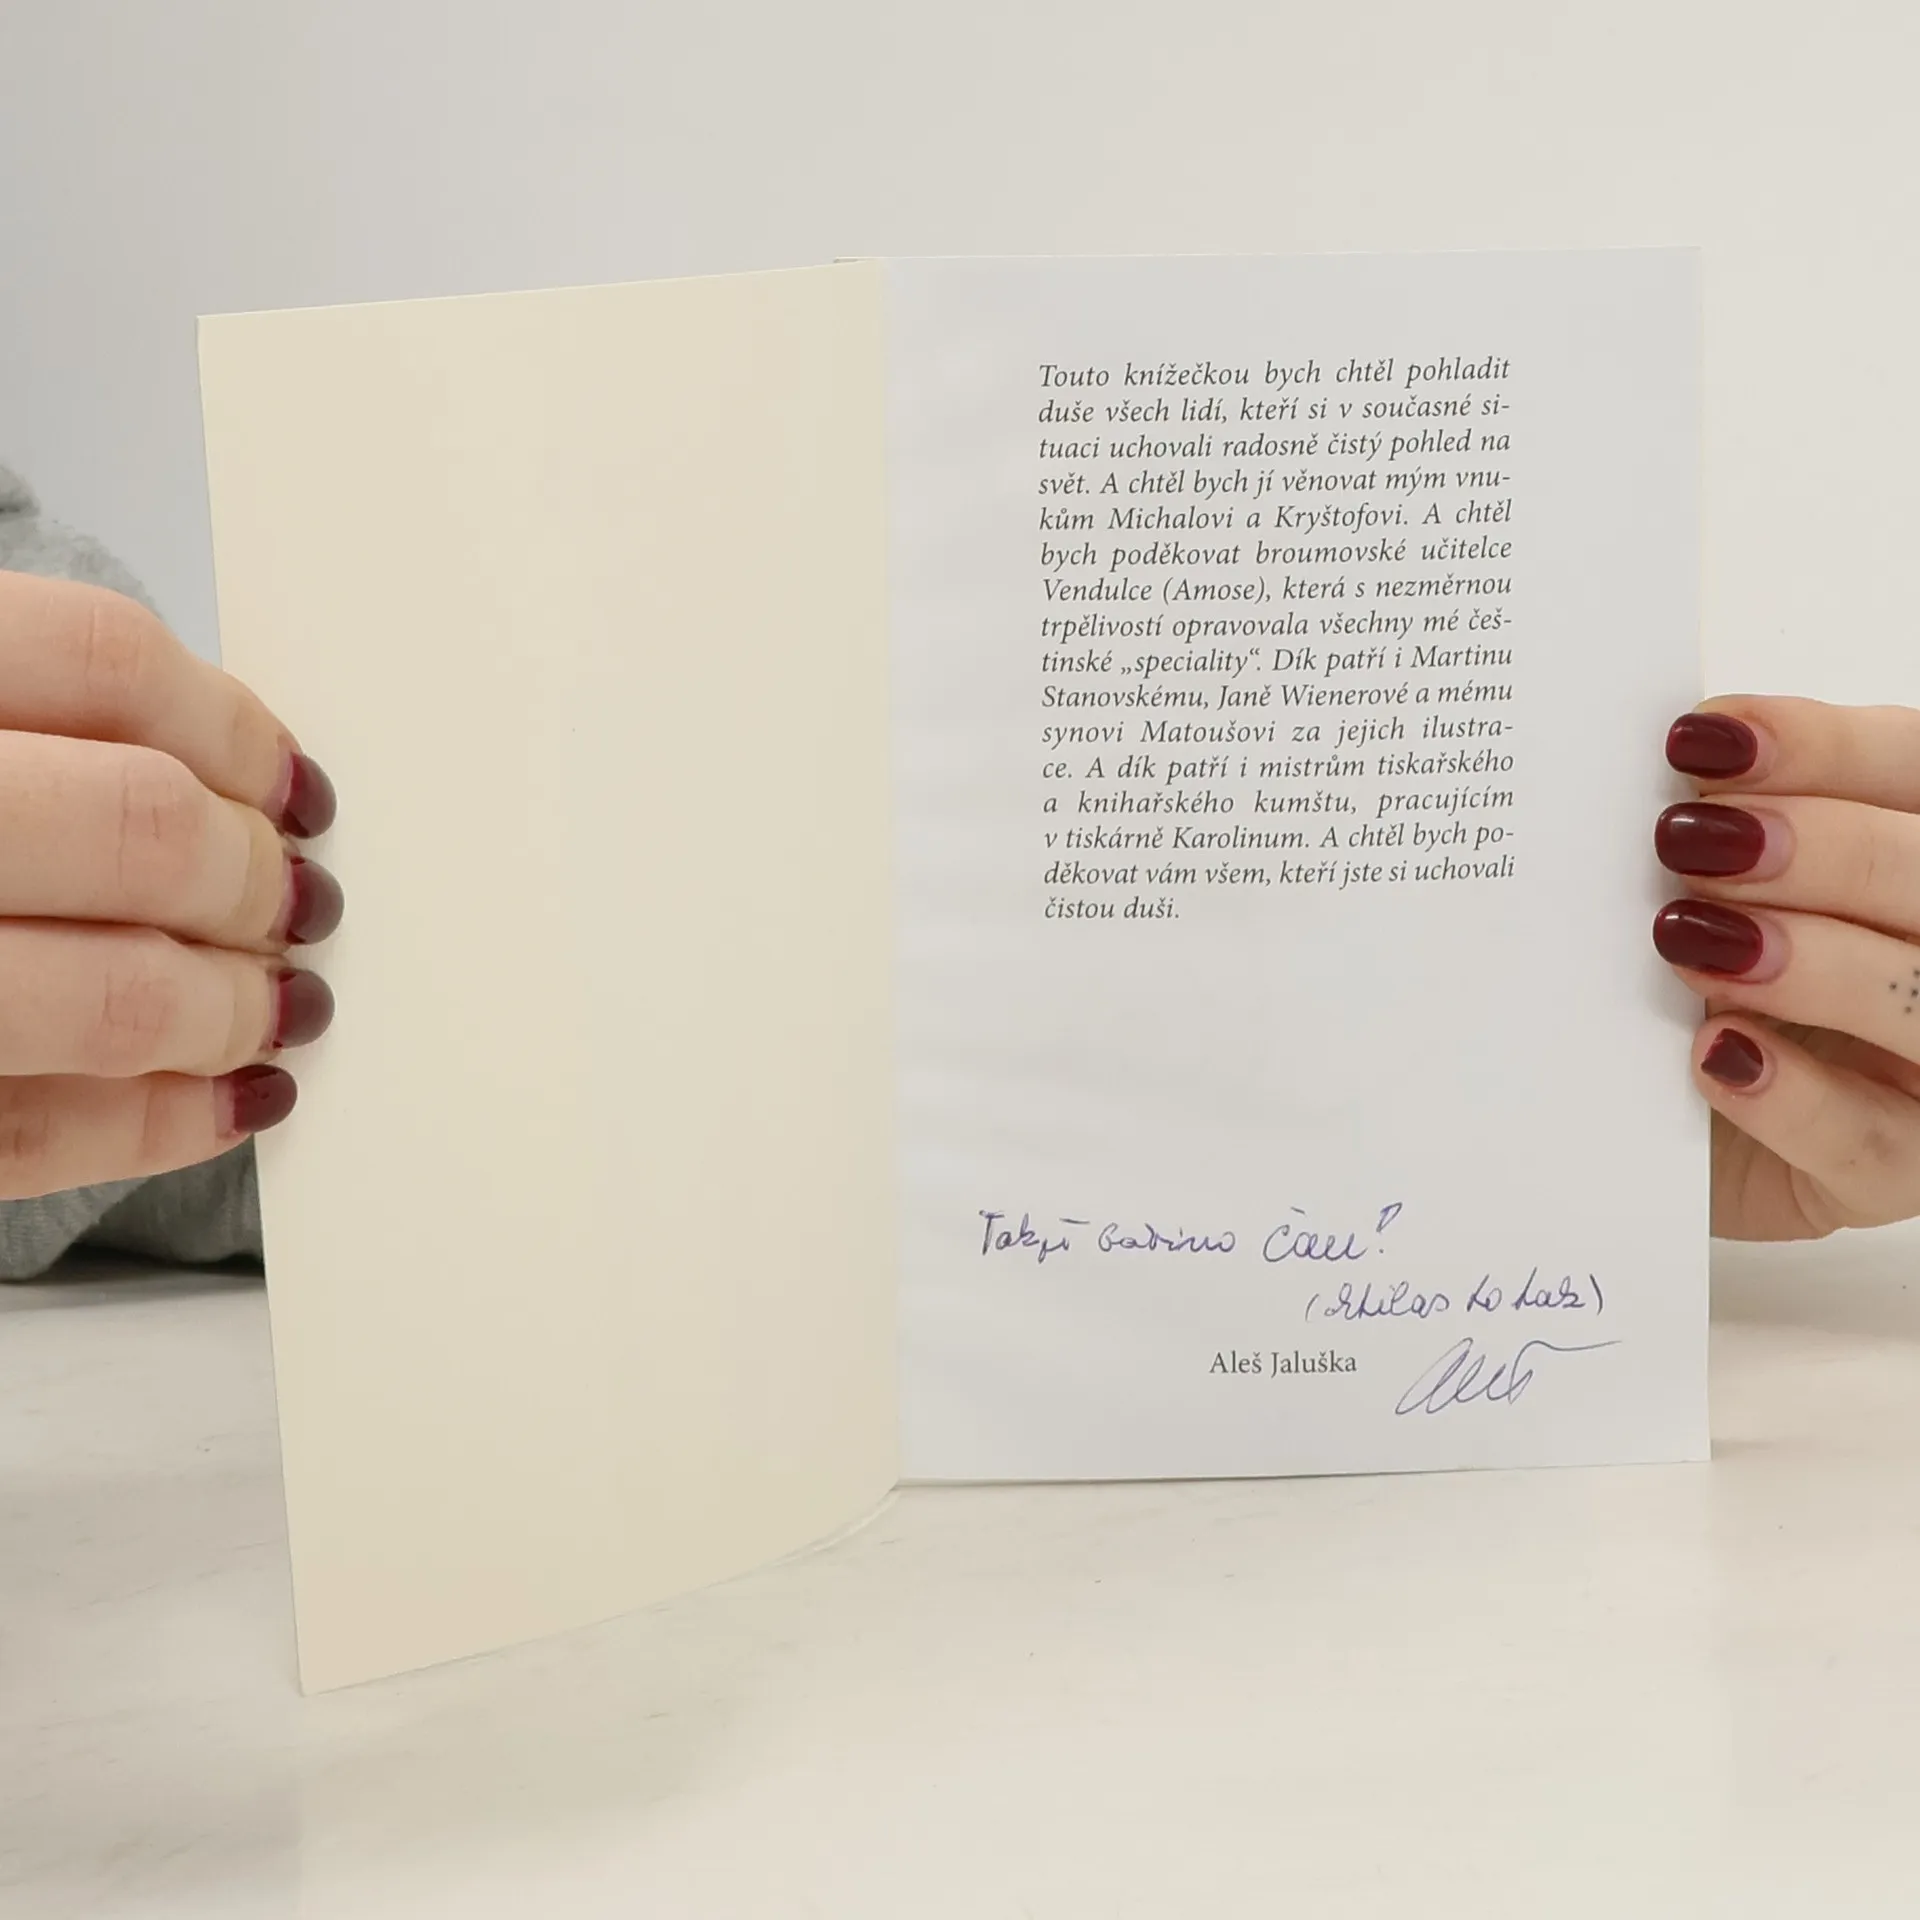 Touto knížečkou bych chtěl pohladit
duše všech lidí, kteří si v současné si-
tuaci uchovali radosně čistý pohled na
svět. A chtěl bych jí věnovat mým vnu-
kům Michalovi a Kryštofovi. A chtěl
bych poděkovat broumovské učitelce
Vendulce (Amose), která s nezměrnou
trpělivostí opravovala všechny mé češ-
tinské „speciality“. Dík patří i Martinu
Stanovskému, Janě Wienerové a mému
synovi Matoušovi za jejich ilustra-
ce. A dík patří i mistrům tiskařského
a knihařského kumštu, pracujícím
v tiskárně Karolinum. A chtěl bych po-
děkovat vám všem, kteří jste si uchovali
čistou duši.
Aleš Jaluška